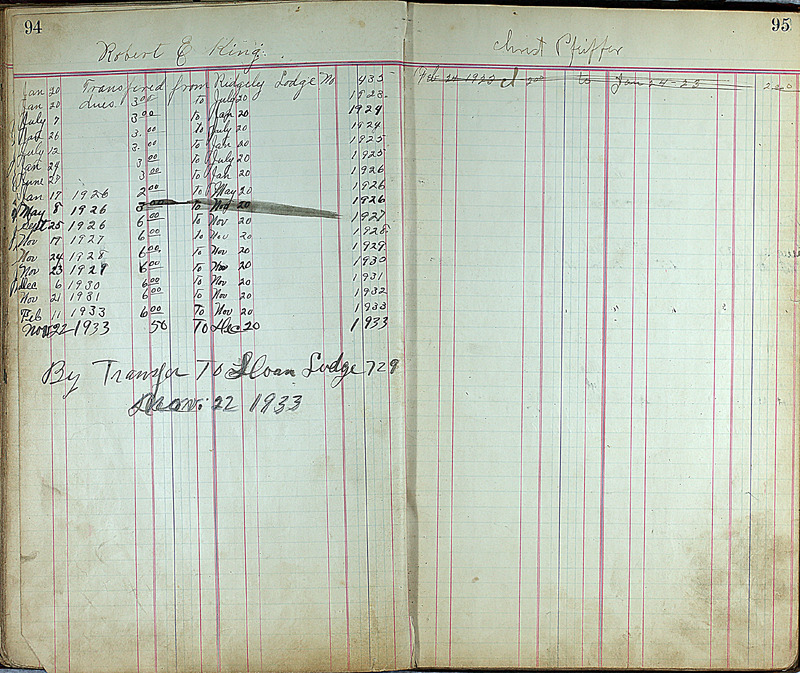 94
Robert E King.
Jan 20 Transfired from Ridgely Lodge No 435
Jan 20 dues. 3.00 To July 20 1923
July 7 3.00 To Jan 20 1924
Jan 26 3.00 To July 20 1924
July 12 3.00 To Jan 20 1925
Jan 24 3.00 To July 20 1925
June 27 3.00 To Jan 20 1926
Jan 17 1926 2.00 To May 20 1926
May 8 1926 3.00 To Nov 20 1926
Sept 25 1926 6.00 To Nov 20 1927
Nov 17 1927 6.00 To Nov 20 1928
Nov 24 1928 6.00 To Nov 20 1929
Nov 23 1929 6.00 To Nov 20 1930
Dec 6 1930 6.00 To Nov 20 1931
Nov 21 1931 6.00 To Nov 20 1932
Feb 11 1933 6.00 To Nov 20 1933
Nov 22 1933 50 To Dec 20 1933
By Transfer To Sloan Lodge 729
Nov: 22 1933
95
Christ Pfeiffer
Feb 24 1922 to Jan 24-23 2.00